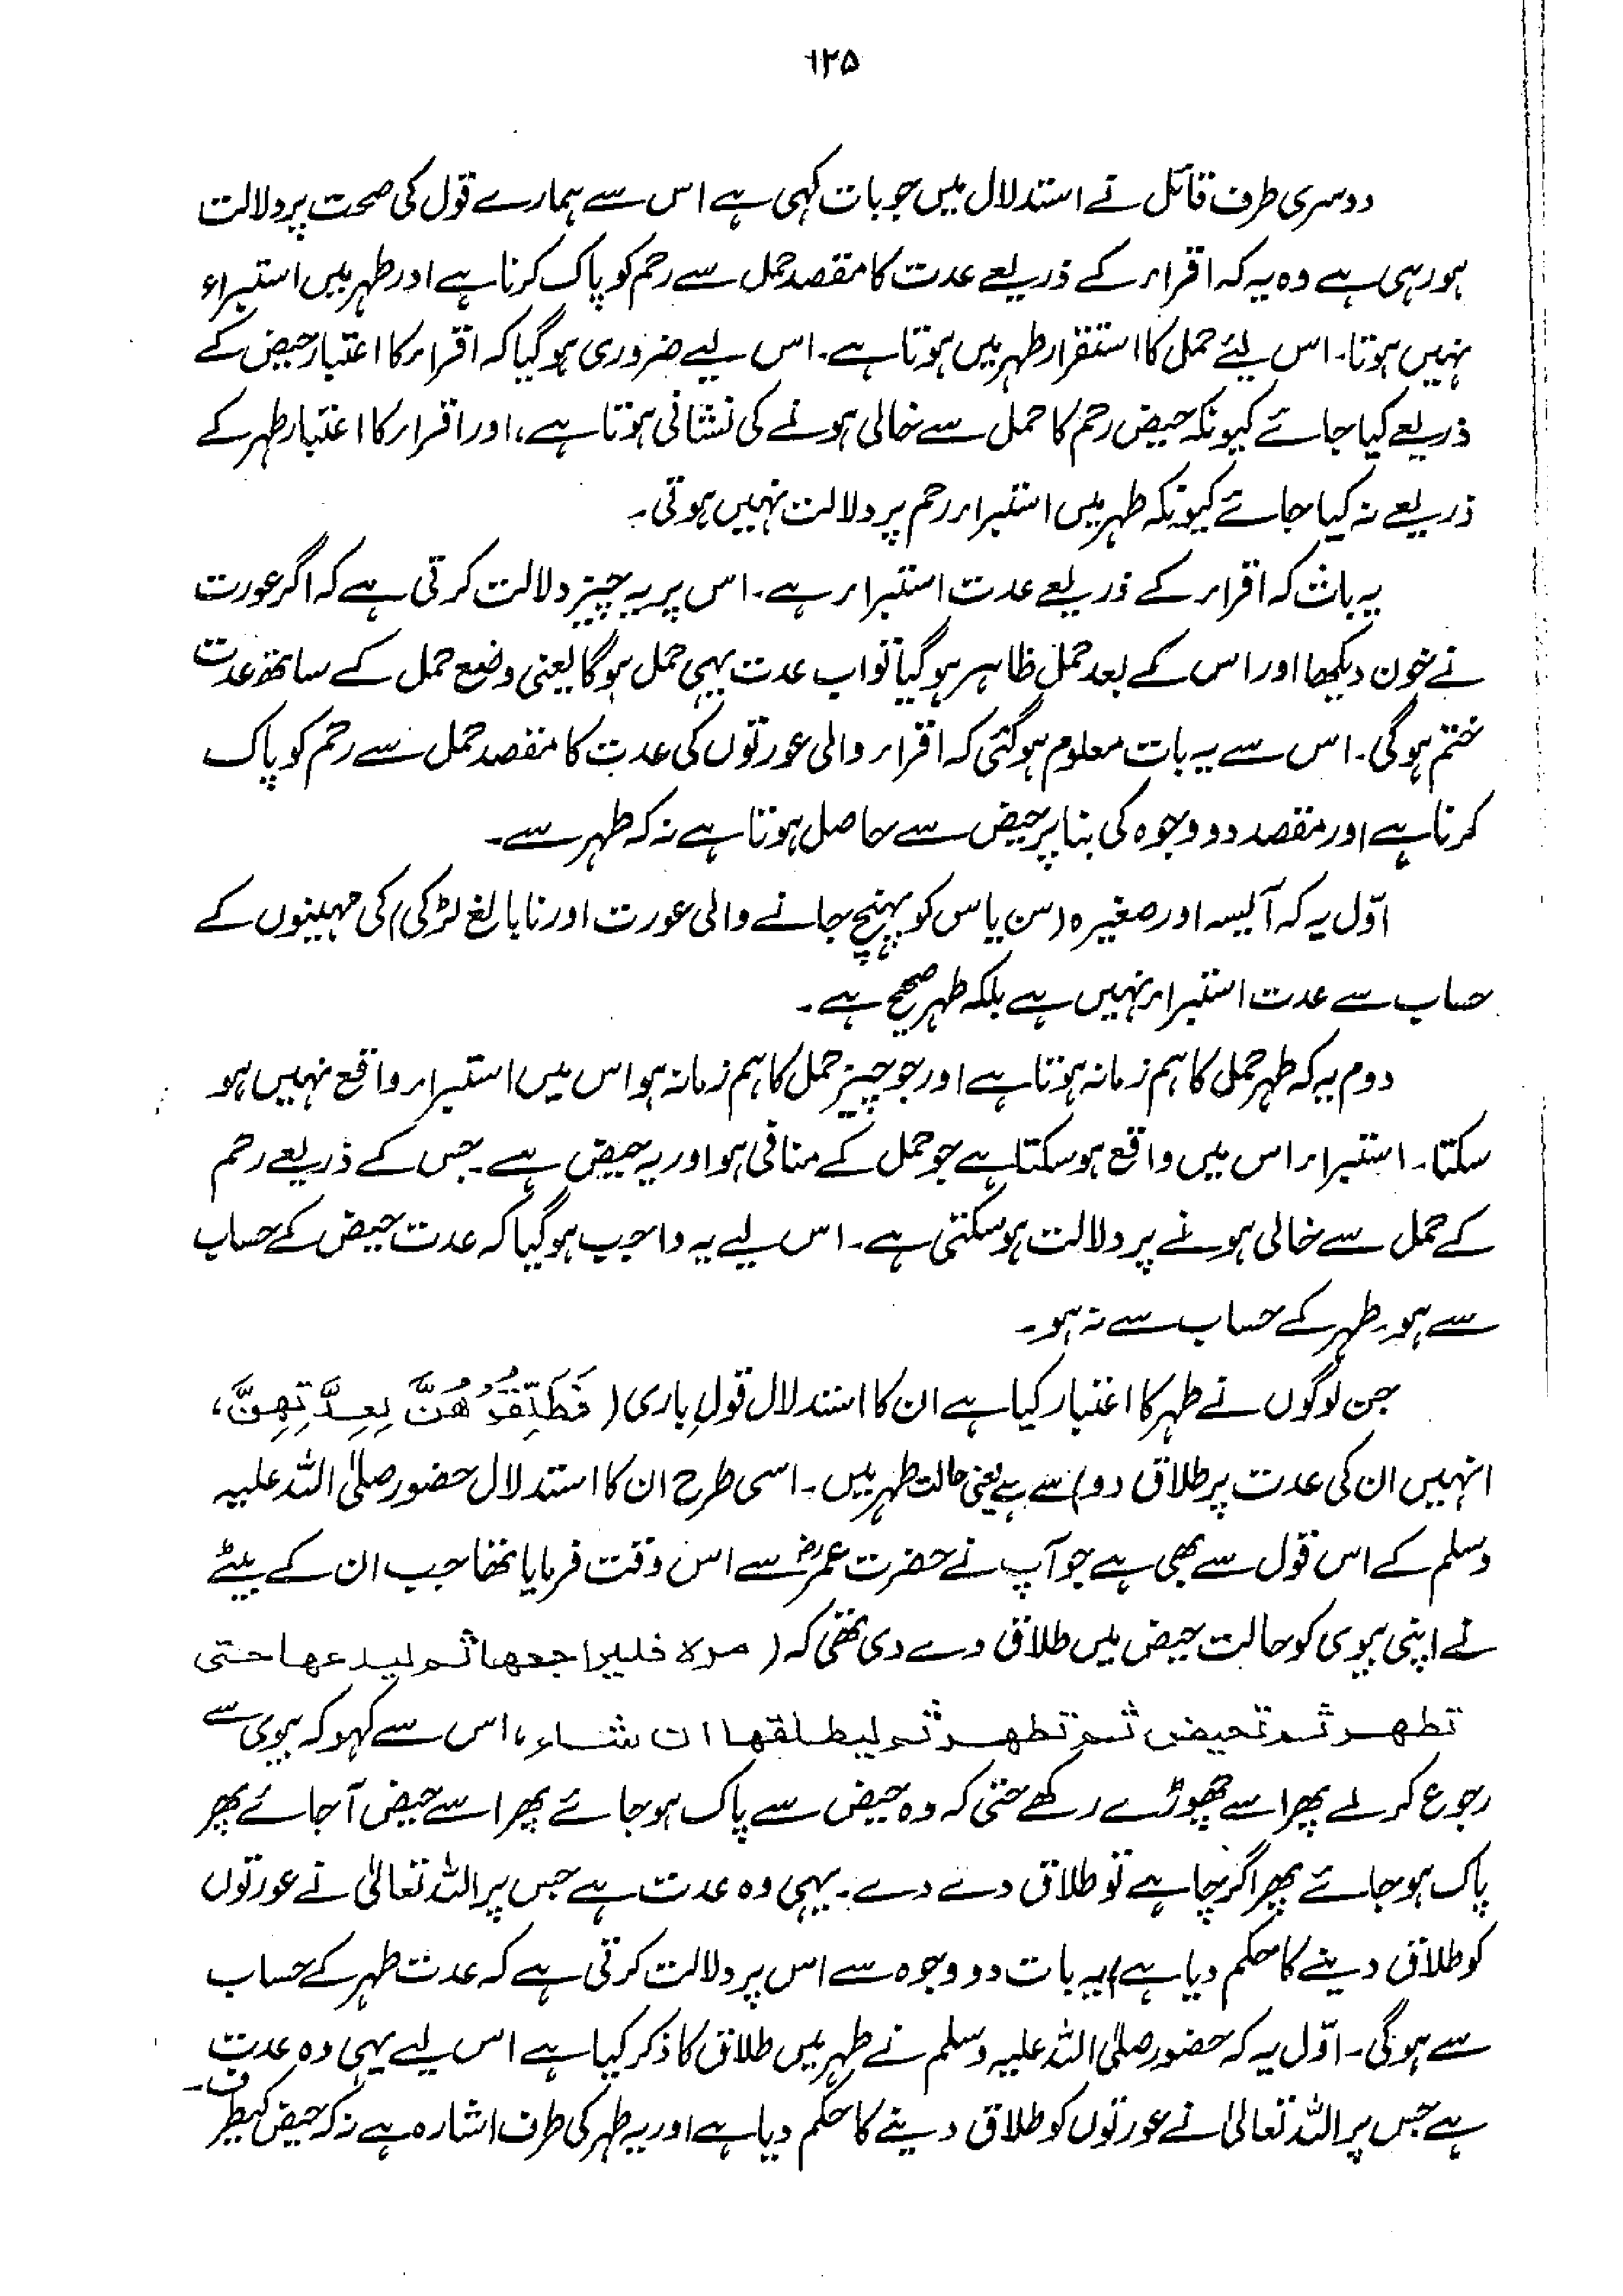 ۱۲۵
دوسری طرف قائل نے استدلال میں جو بات کہی ہے اس سے ہمارے قول کی صحت پر دلالت
ہو رہی ہے وہ یہ کہ اقراء کے ذریعے عدت کا مقصد حمل سے رحم کو پاک کرنا ہے اور طہر میں استبراء
نہیں ہوتا۔ اس لئے حمل کا استقرار طہر میں ہوتا ہے۔ اس لیے ضروری ہو گیا کہ اقراء کا اعتبار حیض کے
ذریعے کیا جائے کیونکہ حیض رحم کا حمل سے خالی ہونے کی نشانی ہوتا ہے، اور اقراء کا اعتبار طہر کے
ذریعے نہ کیا جائے کیونکہ طہر میں استبراء رحم پر دلالت نہیں ہوتی۔
یہ بات کہ اقراء کے ذریعے عدت استبراء ہے۔ اس پر یہ چیز دلالت کرتی ہے کہ اگر عورت
نے خون دیکھا اور اس کے بعد حمل ظاہر ہو گیا تو اب عدت یہی حمل ہو گا یعنی وضع حمل کے ساتھ عدت
ختم ہوگی۔ اس سے یہ بات معلوم ہو گئی کہ اقراء والی عورتوں کی عدت کا مقصد حمل سے رحم کو پاک
کرنا ہے اور مقصد دو وجوہ کی بنا پر حیض سے حاصل ہوتا ہے نہ کہ طہر سے۔
اوّل یہ کہ آئیسہ اور صغیرہ (سن یاس کو پہنچ جانے والی عورت اور نابالغ لڑکی) کی مہینوں کے
حساب سے عدت استبراء نہیں ہے بلکہ طہر صحیح ہے۔
دوم یہ کہ طہر حمل کا ہم زمانہ ہوتا ہے اور جو چیز حمل کا ہم زمانہ ہو اس میں استبراء واقع نہیں ہو
سکتا۔ استبراء اس میں واقع ہو سکتا ہے جو حمل کے منافی ہو اور یہ حیض ہے۔ جس کے ذریعے رحم
کے حمل سے خالی ہونے پر دلالت ہو سکتی ہے۔ اس لیے یہ واجب ہو گیا کہ عدت حیض کے حساب
سے ہو۔ طہر کے حساب سے نہ ہو۔
جن لوگوں نے طہر کا اعتبار کیا ہے ان کا استدلال قولِ باری (فَطَلِّقُوْهُنَّ لِعِدَّتِهِنَّ،
انہیں ان کی عدت پر طلاق دو) سے ہے یعنی حالت طہر میں۔ اسی طرح ان کا استدلال حضور صلی اللہ علیہ
وسلم کے اس قول سے بھی ہے جو آپ نے حضرت عمرؓ سے اس وقت فرمایا تھا جب ان کے بیٹے
نے اپنی بیوی کو حالت حیض میں طلاق دے دی تھی کہ (مرہ فلیراجعها ثم لیدعها حتی
تطهر ثم تحیض ثم تطهر ثم لیطلقها ان شاء، اس سے کہو کہ بیوی سے
رجوع کر لے پھر اسے چھوڑے رکھے حتی کہ وہ حیض سے پاک ہو جائے پھر اسے حیض آ جائے پھر
پاک ہو جائے پھر اگر چاہے تو طلاق دے دے۔ یہی وہ عدت ہے جس پر اللہ تعالیٰ نے عورتوں
کو طلاق دینے کا حکم دیا ہے) یہ بات دو وجوہ سے اس پر دلالت کرتی ہے کہ عدت طہر کے حساب
سے ہوگی۔ اوّل یہ کہ حضور صلی اللہ علیہ وسلم نے طہر میں طلاق کا ذکر کیا ہے اس لیے یہی وہ عدت
ہے جس پر اللہ تعالیٰ نے عورتوں کو طلاق دینے کا حکم دیا ہے اور یہ طہر کی طرف اشارہ ہے نہ کہ حیض کیطرف۔